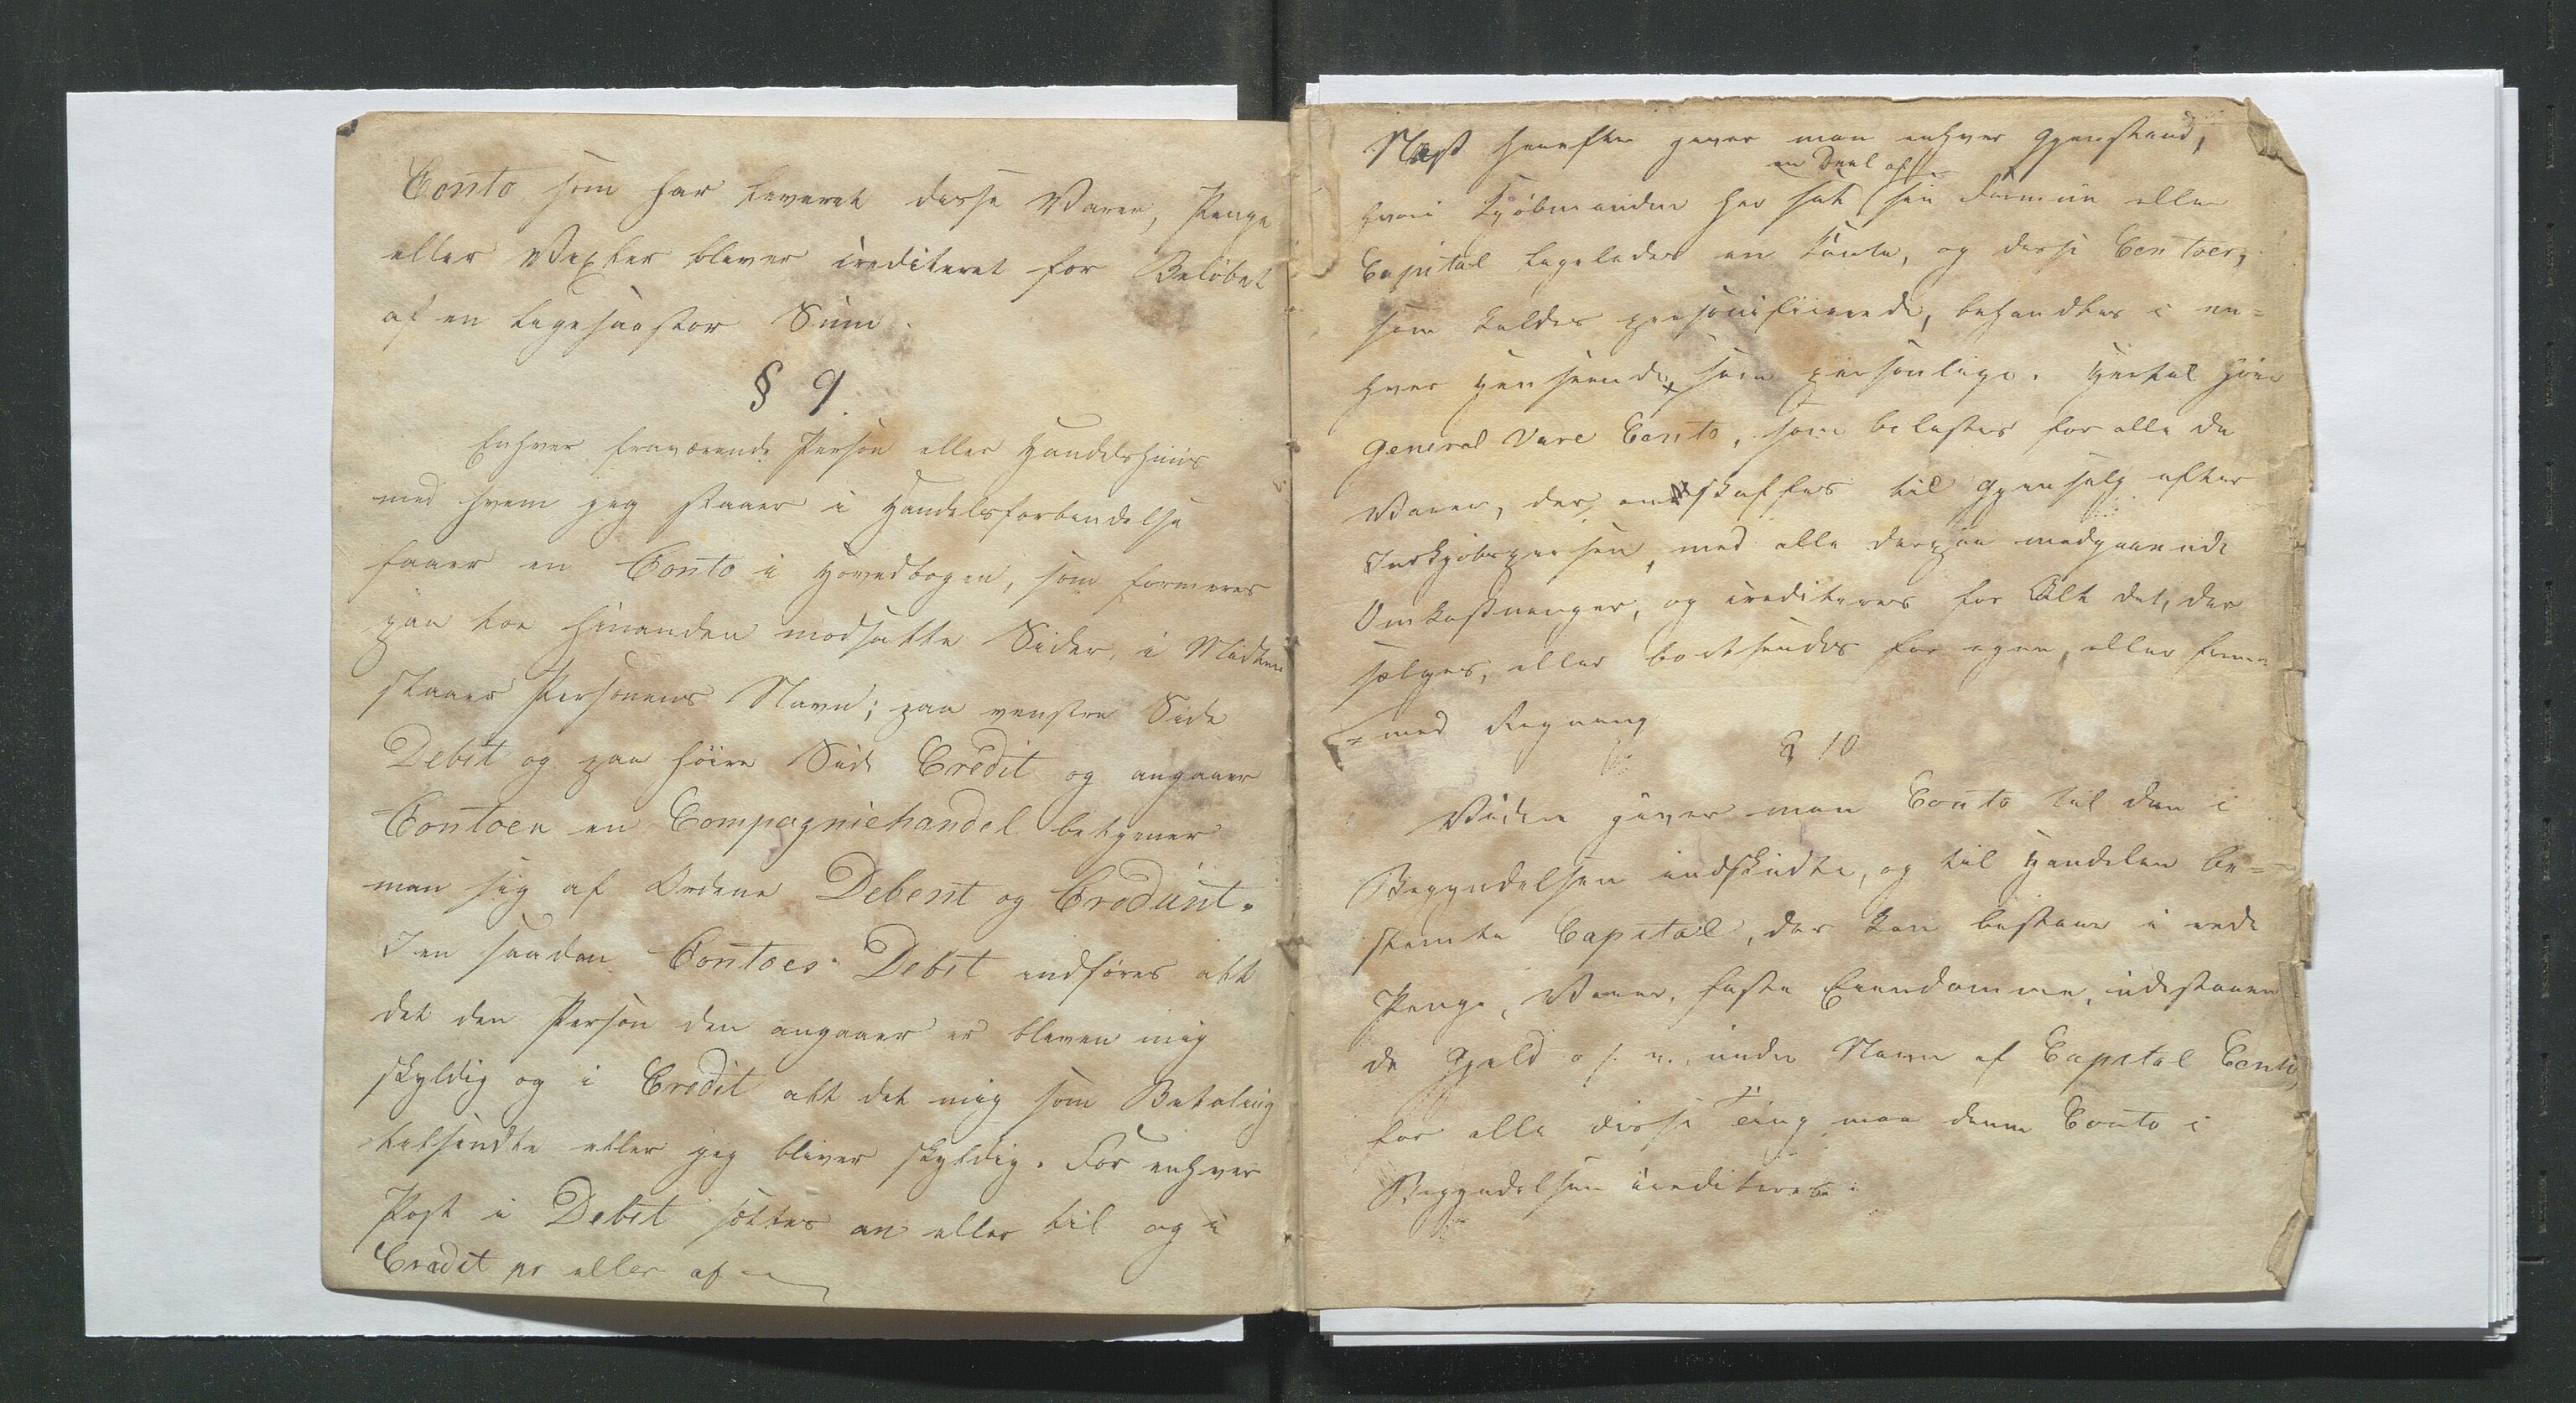 Conto som har leveret disse Varer, Penge
eller Vexler bliver crediteret for Beløbet
af en ligesaastor Sum.
§ 9.
Enhver fraværende Person eller Handelshuus
med hvem jeg staaer i Handelsforbindelse
faaer en Conto i Hovedbogen, som formeres
paa toe hinanden modsatte Sider, i Midten
staaer Personens Navn; paa venstre Side
Debet og paa høire Side Credit og angaaer
Contoen en Compagniehandel betjener
man sig af Ordene Debent og Credunt.
I en saadan Contoes Debet indføres alt
det den Person den angaaer er bleven mig
skyldig og i Credit alt det mig som Betaling
tilsendte eller jeg bliver skyldig. For enhver
Post i Debet sættes an eller til og i
Credit pr eller af
Næst herefter giver man enhver Gjenstand,
en Deel af
hvori Kjøbmanden har sat sin Formue eller
Capital ligeledes en Conto, og disse Contoer,
som kaldes personificerede, behandles i en=
hver Henseende, som personlige. Hertil hører
General Vare Conto, som belastes for alle de
Varer, der anskaffes til Gjensalg efter
Indkjøbsprisen, med alle derpaa medgaaende
Omkostninger, og crediteres for Alt det, der
sælges, eller bortsendes for egen, eller frem
=med Regning
§ 10
Videre giver man Conto til den i
Begyndelsen indskudte, og til Handelen be=
stemte Capital, der kan bestaae i rede
Penge, Varer, faste Eiendomme, udestaaen
de Gjeld o. s. v. under Navn af Capital Conto,
for alle disse Ting maa denne Conto i
Begyndelsen crediteres.